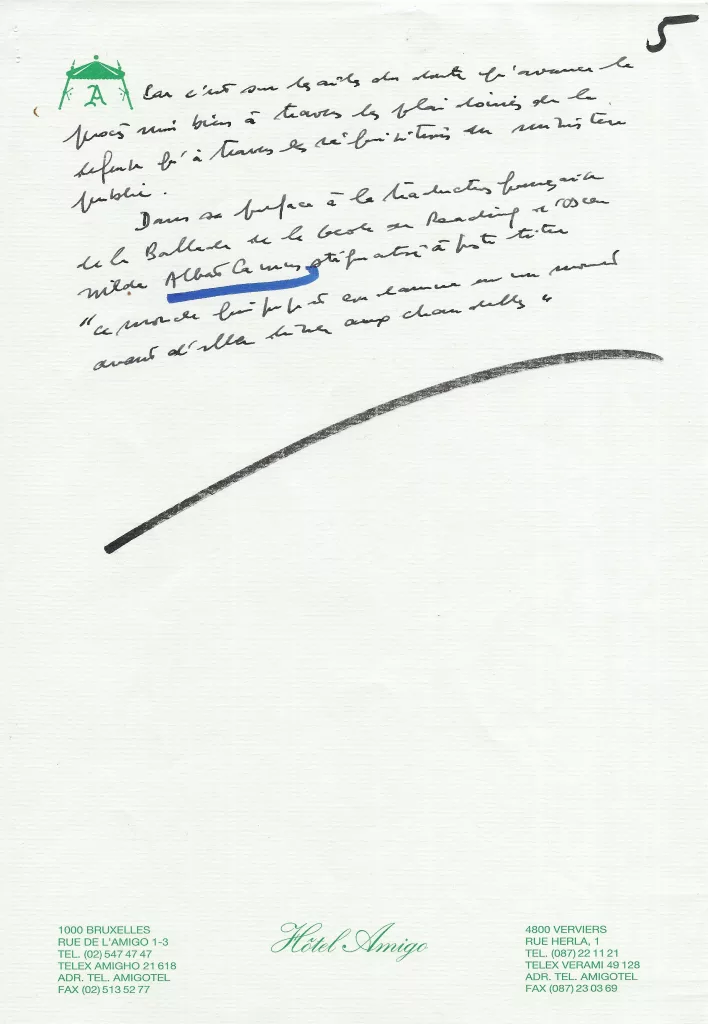 5
A
Car c'est sur les ailes du doute qu'avance le
procès aussi bien à travers les plaidoiries de la
défense qu'à travers les réquisitoires du ministère
public.
Dans sa préface à la traduction française
de la Ballade de la Geole de Reading d'Oscar
Wilde Albert Camus stigmatise à juste titre
"ce monde qui en un moment
avant d'aller dîner aux chandelles"
1000 BRUXELLES
RUE DE L'AMIGO 1-3
TEL. (02) 547 47 47
TELEX AMIGHO 21 618
ADR. TEL. AMIGOTEL
FAX (02) 513 52 77
Hôtel Amigo
4800 VERVIERS
RUE HERLA, 1
TEL. (087) 22 11 21
TELEX VERAMI 49 128
ADR. TEL. AMIGOTEL
FAX (087) 23 03 69